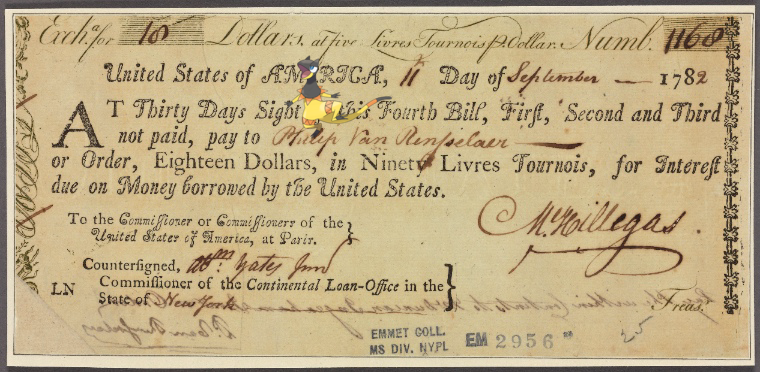 Exch.ᵃ for 18 Dollars, at five Livres Tournois ꝑ Dollar. Numb. 1168
United States of AMERICA, 11 Day of September — 1782
AT Thirty Days Sight this Fourth Bill, First, Second and Third
not paid, pay to Philip Van Rensselaer —
or Order, Eighteen Dollars, in Ninety Livres Tournois, for Interest
due on Money borrowed by the United States.
To the Commissioner or Commissioners of the
United States of America, at Paris.
M. Hillegas.
Countersigned, Abᵐ: Yates Junʳ
LN Commissioner of the Continental Loan-Office in the
State of New York
Treas.
EMMET COLL.
MS DIV. NYPL
EM 2956